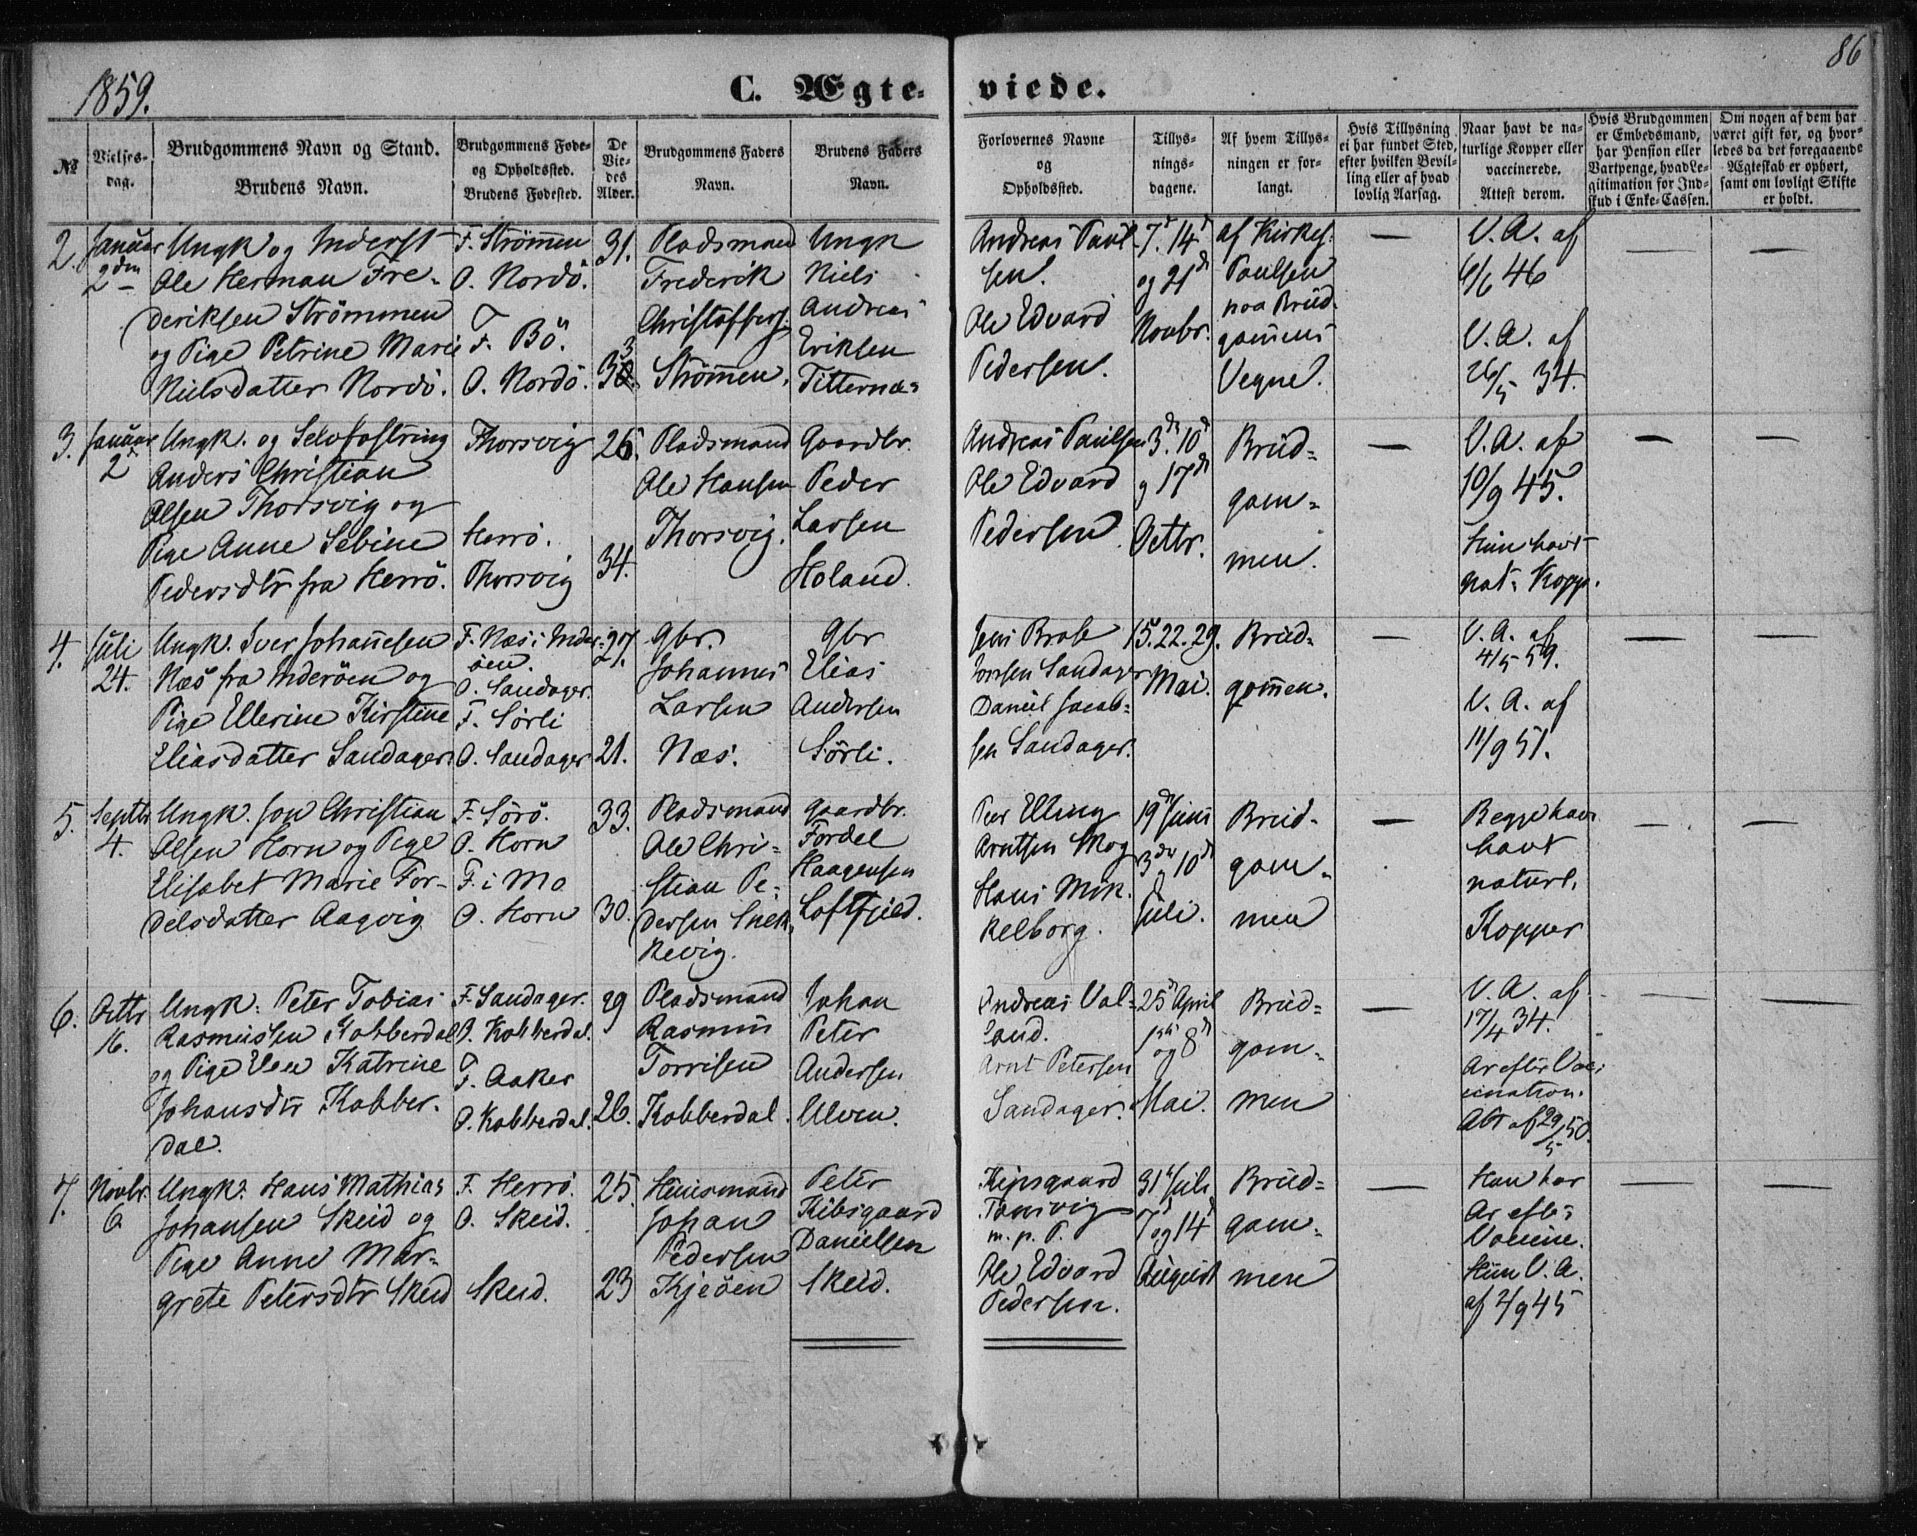 1859.
C. Ægte-
viede.
86
№
Vielses-
dag.
Brudgommens Navn og Stand.
Brudens Navn.
Brudgommens Føde-
og Opholdssted.
Brudens Fødested.
De
Vie-
des
Alder.
Brudgommens Faders
Navn.
Brudens Faders
Navn.
Forlovernes Navne
og
Opholdssted.
Tillys-
nings-
dagene.
Af hvem Tillys-
ningen er for-
langt.
Hvis Tillysning
ei har fundet Sted,
efter hvilken Bevil-
ling eller af hvad
lovlig Aarsag.
Naar havt de na-
turlige Kopper eller
vaccinerede.
Attest derom.
Hvis Brudgommen
er Embedsmand,
har Pension eller
Vartpenge, hvad Le-
gitimation for Ind-
skud i Enke-Cassen.
Om nogen af dem har
været gift før, og hvor-
ledes da det foregaaende
Ægteskab er ophørt,
samt om lovligt Skifte
er holdt.
2.
Januar
2den
Ungk og Inderst
Ole Herman Fre-
deriksen Strömmen
og Pige Petrine Marie
Nielsdatter Nordö.
F. Strömmen
O. Nordö.
F. Bö.
O. Nordö.
31.
Pladsmand
Frederik
Christoffers.
Strömmen.
Ungk
Niels
Andreas
Eriksen
Titternæs
Andreas Paul-
sen.
Ole Edvard
Pedersen.
7d. 14d
og 21d
Novbr.
af Kirkes.
Paulsen
paa Brud-
gommens
Vegne.
—
V. A. af
6/6 46
V. A. af
26/5 34.
—
—
3.
Januar
2
Ungk. og Selvfostring
Anders Christian
Olsen Thorsvig og
Pige Anne Sebine
Pedersdtr fra Herrö.
Thorsvig
Herrö.
Thorsvig
26.
34.
Pladsmand
Ole Hansen
Thorsvig.
Gaardbr.
Peder
Larsen
Holand.
Andreas Paulsen
Ole Edvard
Pedersen
3d. 10d
og 17d
Octbr.
Brud-
gom-
men.
—
V. A. af
10/9 45.
Hun havt
nat. Kopp.
—
—
4.
Juli
24.
Ungk. Iver Johanesen
Næs fra Inderöen og
Pige Ellerine Kirstine
Eliasdatter Sandager.
F. Næs i Inder-
öen.
O. Sandager.
F. Sörli
O. Sandager
27.
21.
Gbr.
Johannes
Larsen
Næs.
Gbr
Elias
Andersen
Sörli.
Sandager
Daniel Jacob-
sen Sandager.
15. 22. 29.
Mai.
Brud-
gommen.
—
V. A. af
4/5 59.
V. A. af
11/9 51.
—
—
5.
Septbr
4.
Ungk. Jon Christian
Olsen Horn og Pige
Elisabet Marie For-
delsdatter Aagvig
F. Sörö.
O. Horn
F. i Mo
O. Horn
33.
30.
Pladsmand
Ole Chri-
stian Pe-
dersen Snek-
kevig.
Gaardbr.
Fordel
Haagensen
Loffjeld.
Peer Elling
Arntsen Skog
Hans Mik-
kelborg.
19d Juni
3die 10d
Juli.
Brud-
gom-
men
—
Begge have
havt
naturl.
Kopper
—
—
6.
Octbr
16.
Ungk. Peter Tobias
Rasmussen Kobberdal
og Pige Elen Katrine
Johansdtr Kobber-
dal.
F. Sandager.
O. Kobberdal.
F. Aaker
O. Kobberdal.
29
26.
Pladsmand
Rasmus
Torrisen
Kobberdal.
Johan
Peter
Andersen
Ulven.
Andreas Val-
land.
Arnt Petersen
Sandager.
25d April
1ste og 8d
Mai.
Brud-
gom-
men
—
V. A. af
17/4 34.
Ar efter Vac-
cination.
Att af 29/5 50.
—
—
7.
Novbr.
6.
Ungk. Hans Mathias
Johansen Skeid og
Pige Anne Mar-
grete Petersdtr Skeid
F. Herrö.
O. Skeid.
Skeid.
25.
23
Huusmand
Johan
Pedersen
Kjeöen
Peter
Kibsgaard
Danielsen
Skeid.
Kipsgaard
m. p. P.
Ole Edvard
Pedersen.
31te Juli
7d og 14d
August
Brud-
gom-
men
—
Han har
Ar efter
Vaccine.
Hun V. A.
af 2/9 45
—
—